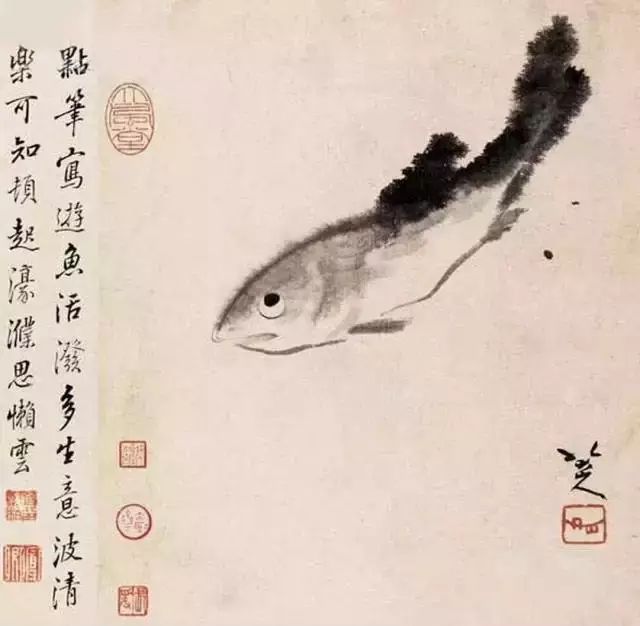 點筆寫遊魚活潑多生意波清
樂可知頓起濠濮思懶雲
八大